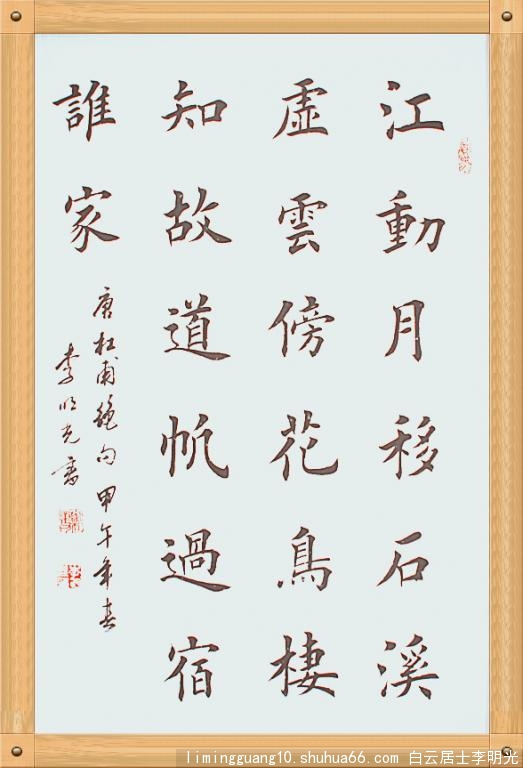 江動月移石溪
虛雲傍花鳥棲
知故道帆過宿
誰家
唐杜甫絕句甲午年春
李明光書
limingguang10.shuhua66.com 白云居士李明光